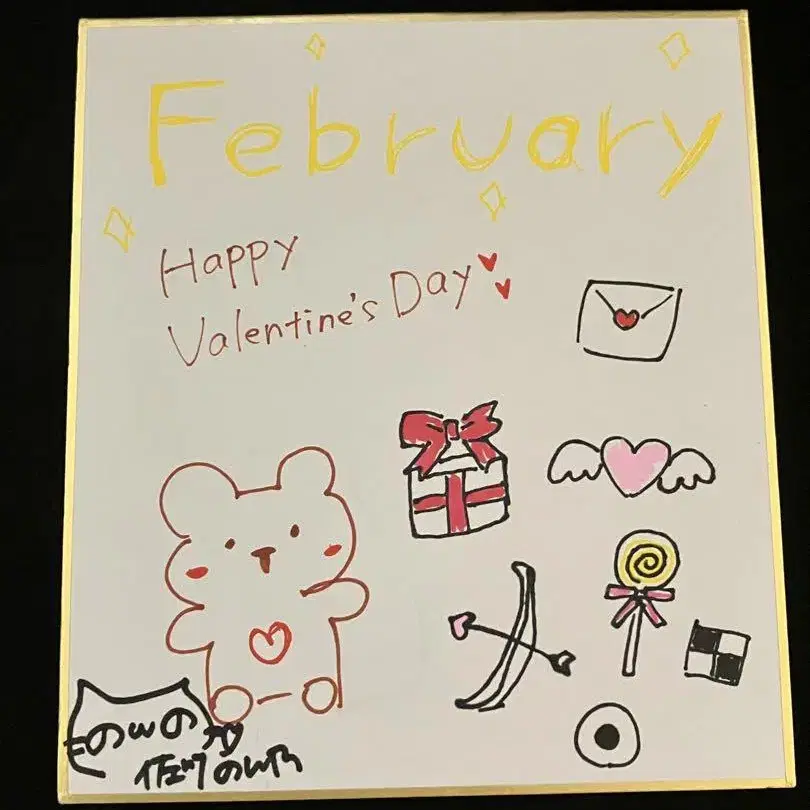 February
Happy
Valentine's Day
のんの